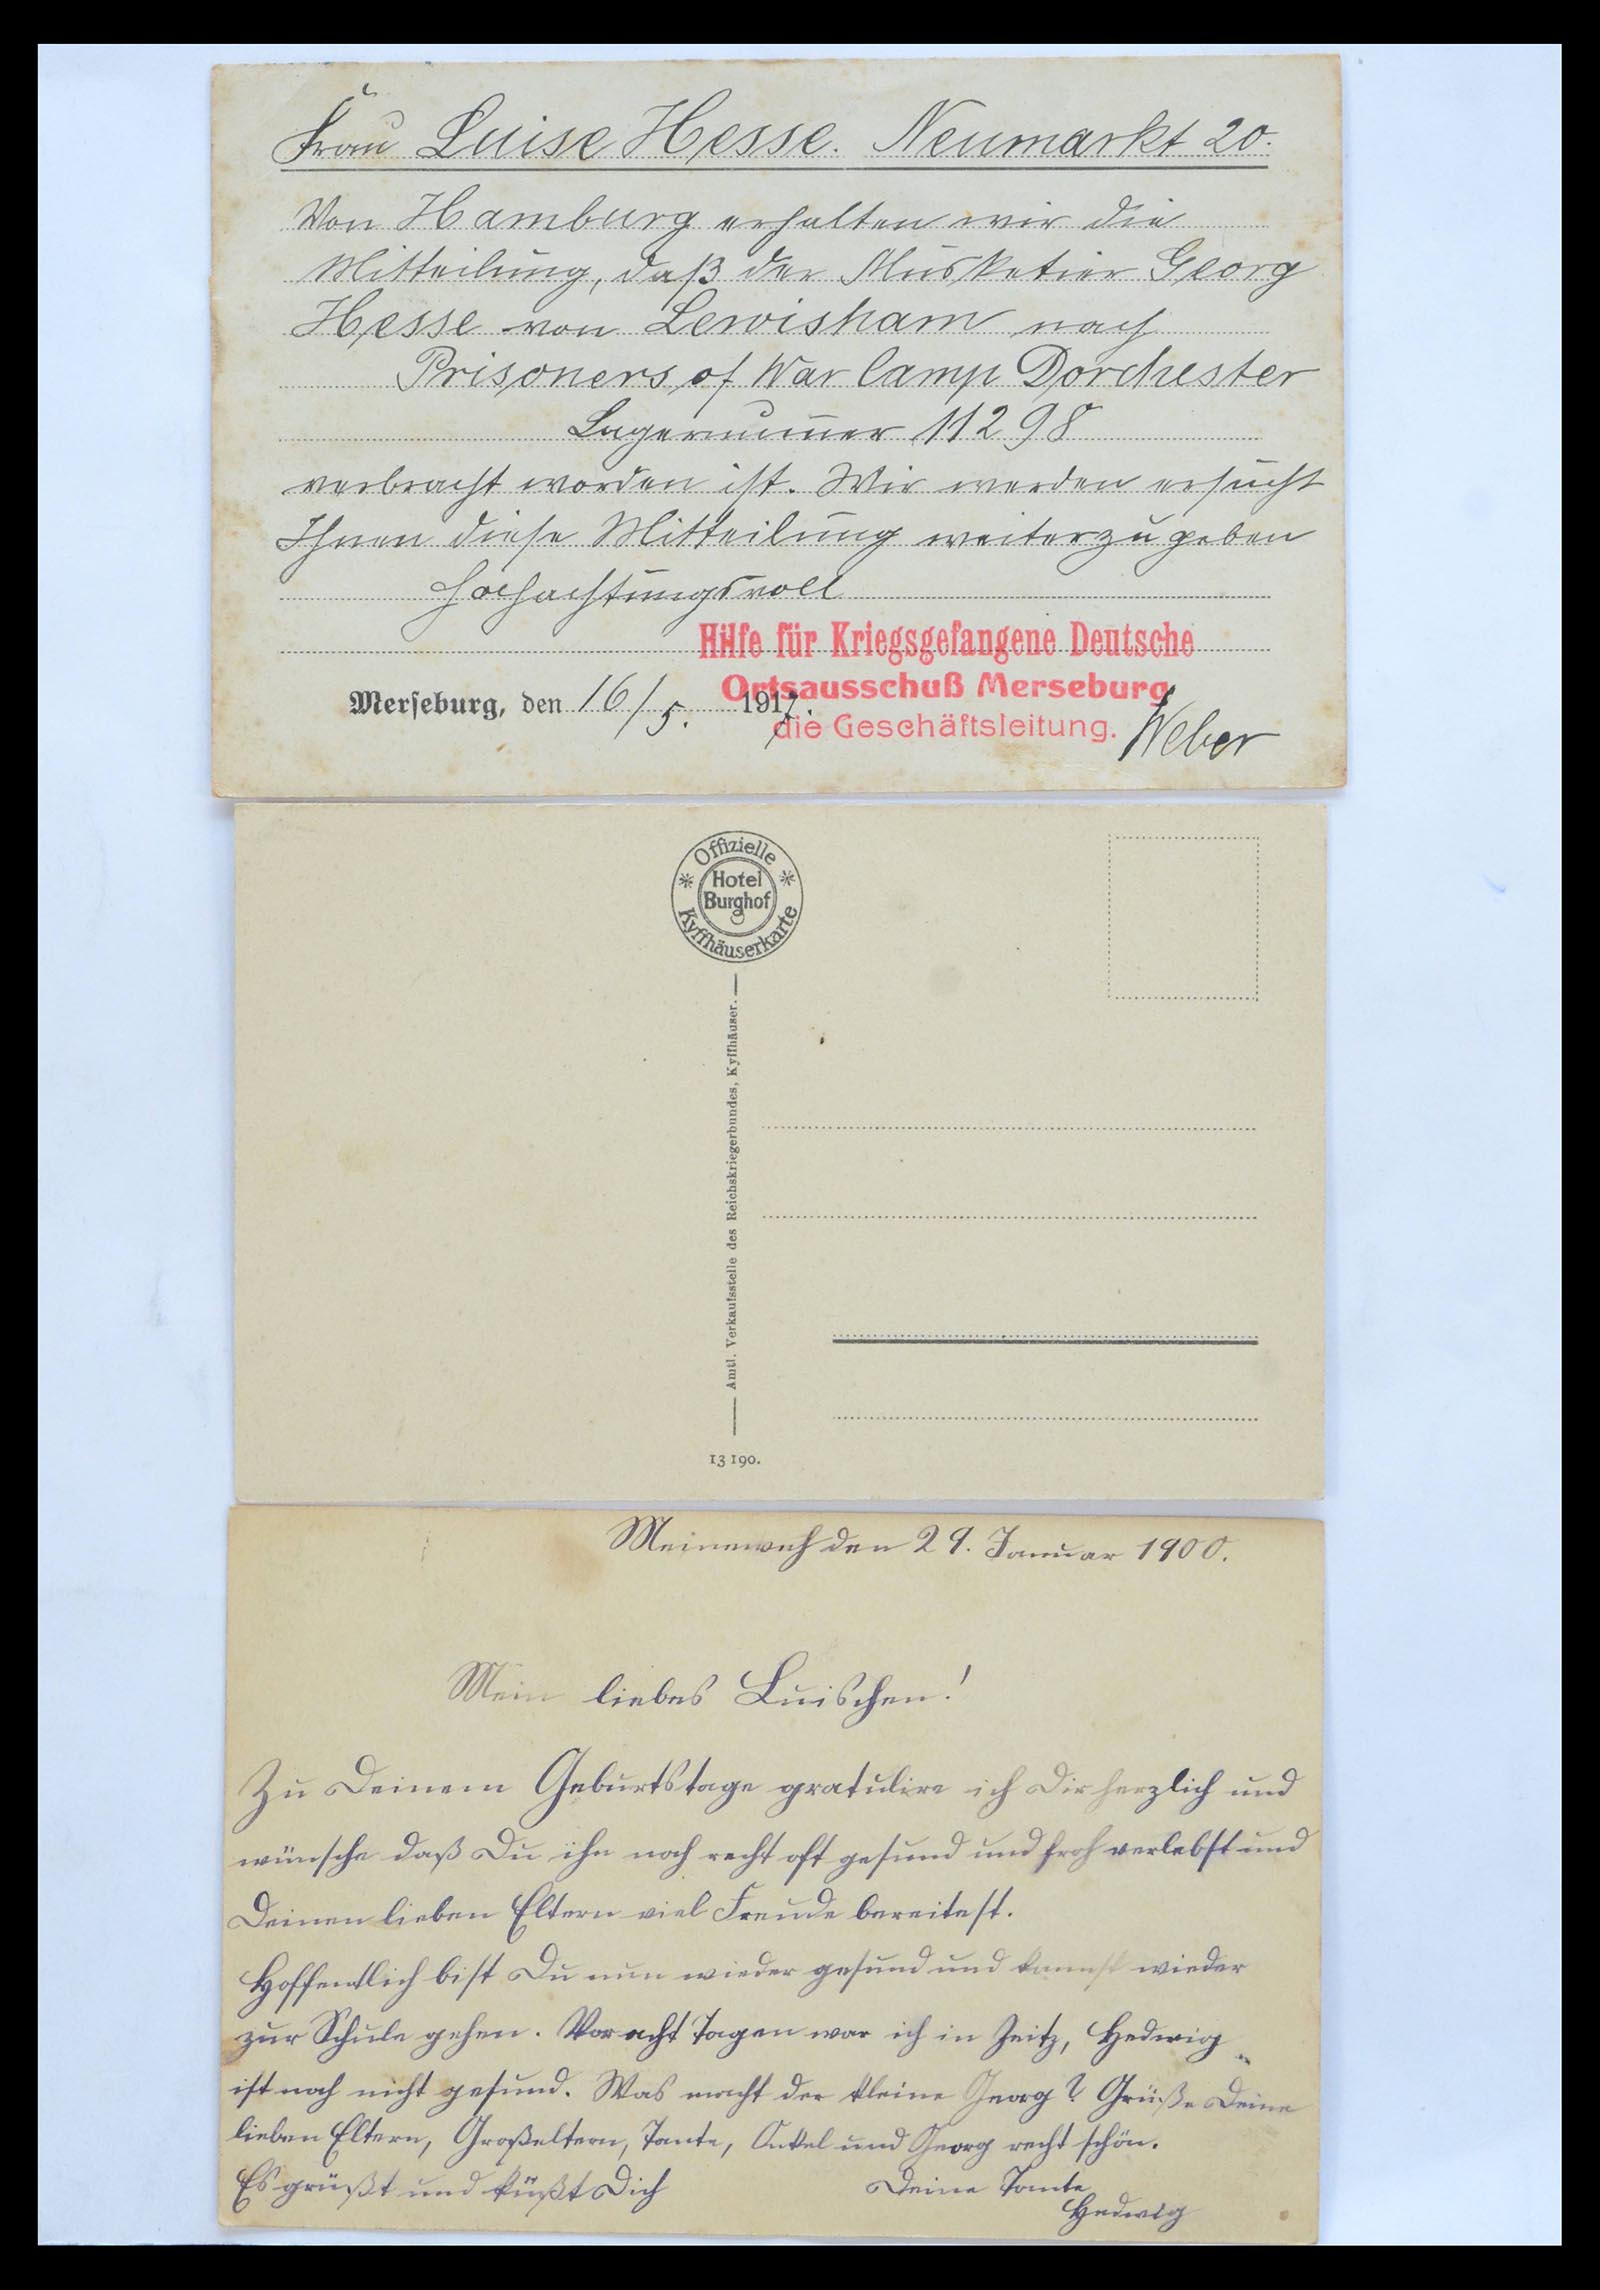 Frau Luise Hesse. Neumarkt 20.
Von Hamburg erhalten wir die
Mitteilung, daß der Musketier Georg
Hesse von Lewisham nach
Prisoners of War Camp Dorchester
Lagernummer 11298
verbracht worden ist. Wir werden ersucht
Ihnen diese Mitteilung weiterzugeben
Hochachtungsvoll
Hilfe für Kriegsgefangene Deutsche
Ortsausschuß Merseburg
die Geschäftsleitung.
Weber
Merseburg, den 16/5. 1917.
Offizielle
Hotel
Burghof
Kyffhäuserkarte
Amtl. Verkaufsstelle des Reichskriegerbundes, Kyffhäuser.
13 190.
Meineweh den 29. Januar 1900.
Mein liebes Luischen!
Zu Deinem Geburtstage gratulire ich Dir herzlich und
wünsche daß Du ihn noch recht oft gesund und froh verlebst und
Deinen lieben Eltern viel Freude bereitest.
Hoffentlich bist Du nun wieder gesund und kannst wieder
zur Schule gehen. Vor acht Tagen war ich in Zeitz, Hedwig
ist noch nicht gesund. Was macht der kleine Georg? Grüße Deine
lieben Eltern, Großeltern, Tante, Onkel und Georg recht schön.
Es grüßt und küßt Dich
Deine Tante
Hedwig